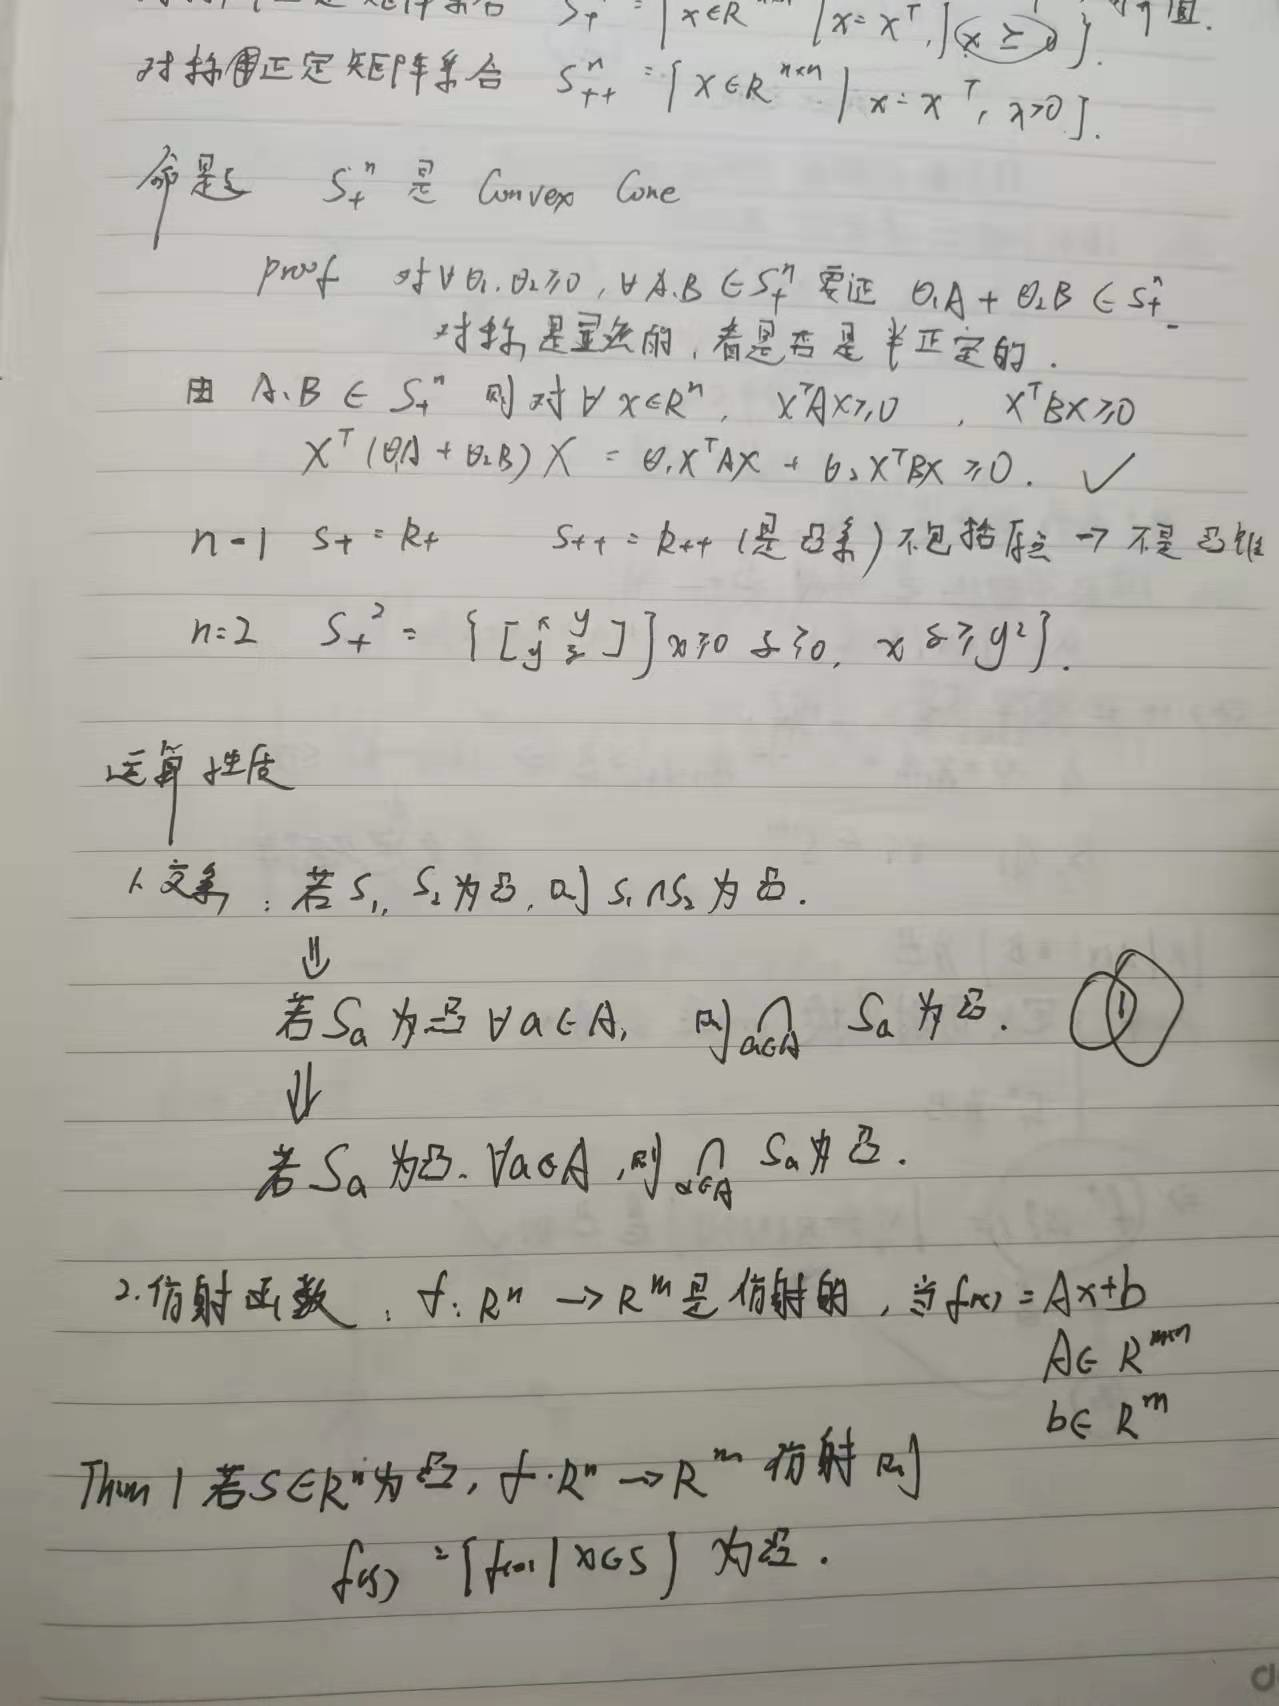 S₊ⁿ = {x∈Rⁿˣⁿ | x=xᵀ, x≽0}.
对称正定矩阵集合 S₊₊ⁿ = {X∈Rⁿˣⁿ | x=xᵀ, x>0}.
命题 S₊ⁿ 是 Convex Cone
proof 对∀θ₁.θ₂≥0, ∀A.B∈S₊ⁿ 要证 θ₁A+θ₂B∈S₊ⁿ
对称是显然的, 看是否是半正定的.
由 A.B∈S₊ⁿ 则对∀x∈Rⁿ, XᵀAX≥0, XᵀBX≥0
Xᵀ(θ₁A+θ₂B)X = θ₁XᵀAX + θ₂XᵀBX ≥0. ✓
n=1 S₊=R₊ S₊₊=R₊₊ (是凸集) 不包括原点 → 不是凸锥
n=2 S₊² = {[x y y z] | x≥0 z≥0, xz≥y²}.
运算性质
1. 交集: 若S₁, S₂为凸, 则S₁∩S₂为凸.
⇓
若Sa为凸 ∀a∈A, 则 ∩ a∈A Sa为凸.
⇓
若Sa为凸. ∀a∈A, 则 ∩ a∈A Sa为凸.
2.仿射函数: f: Rⁿ → Rᵐ是仿射的, 当f(x)=Ax+b
A∈Rᵐˣⁿ
b∈Rᵐ
Thm 1 若S∈Rⁿ为凸, f·Rⁿ→Rᵐ 仿射 则
f(S) = {f(x) | x∈S} 为凸.